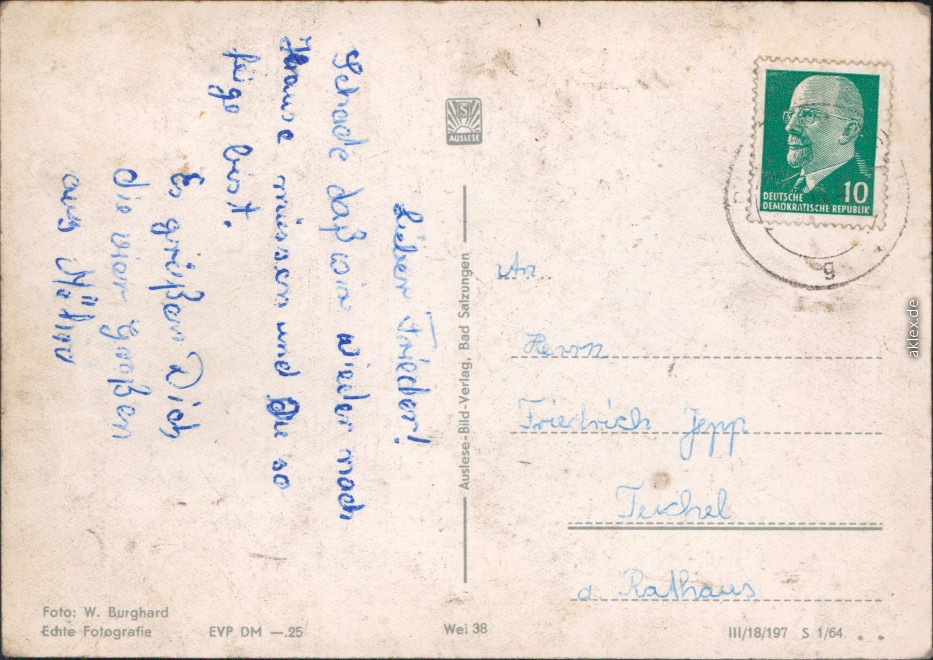 Lieber Frieder!
Schade daß wir wieder nach
Hause müssen und Du so
feige bist.
Es grüßen Dich
die vier großen
aus
AUSLESE
Auslese-Bild-Verlag, Bad Salzungen
DEUTSCHE
DEMOKRATISCHE REPUBLIK
10
g
An
Herrn
Friedrich Jepp
Teichel
a. Rathaus
Foto: W. Burghard
Echte Fotografie
EVP DM —.25
Wei 38
III/18/197 S 1/64
aklex.de